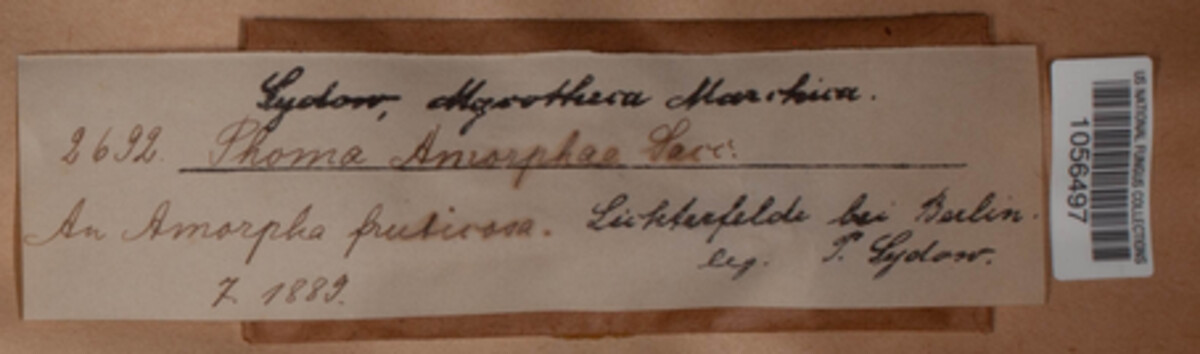 Sydow, Mycotheca Marchica.
2692. Phoma Amorphae Sacc.
An Amorpha fruticosa. Lichterfelde bei Berlin.
leg. P. Sydow.
7. 1889.
US NATIONAL FUNGUS COLLECTIONS
1056497